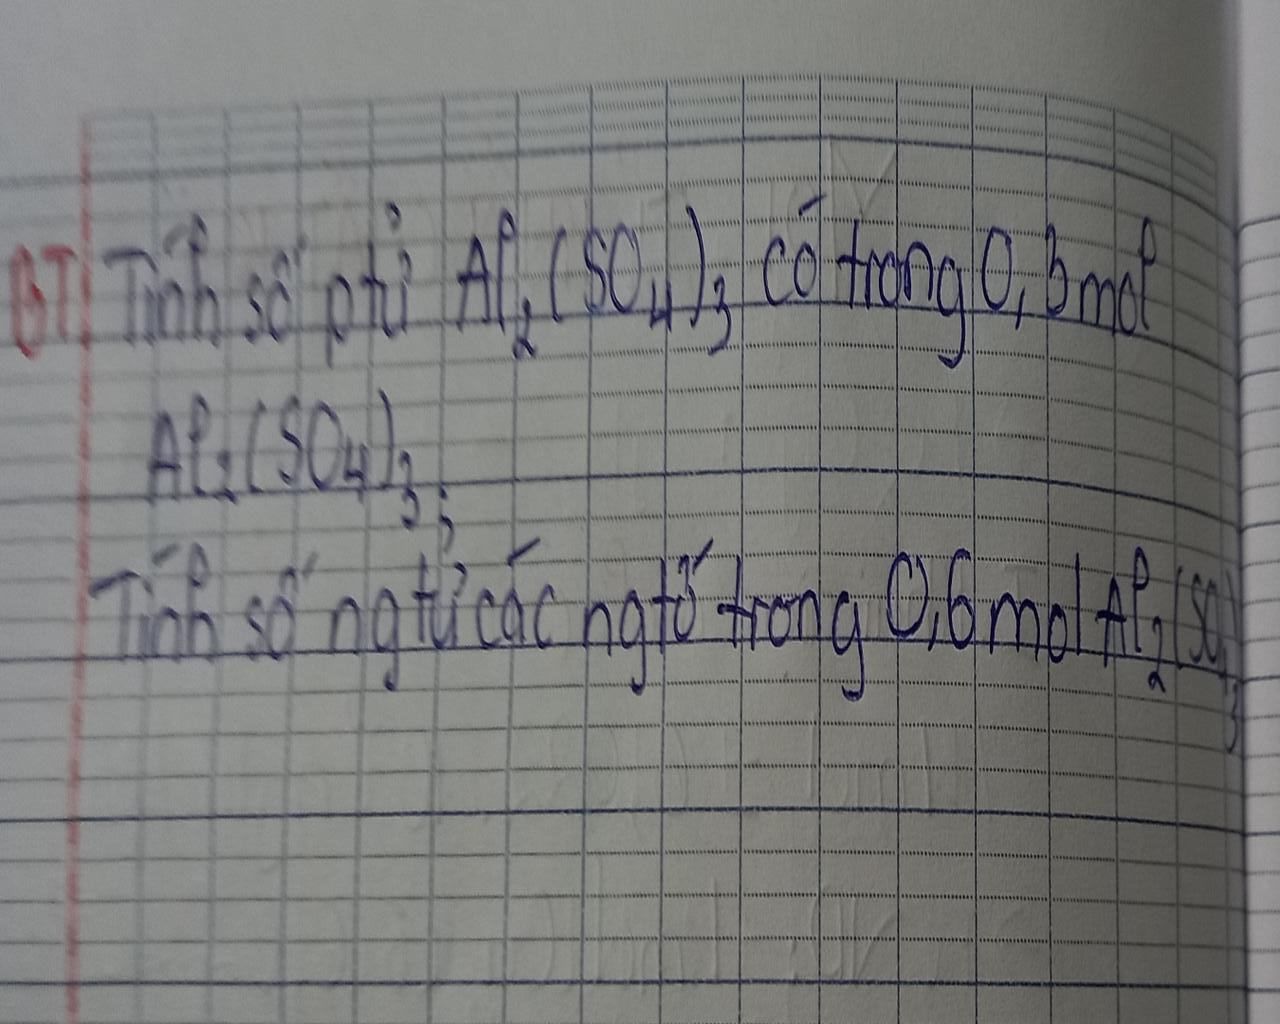 BT Tính số ptử Al₂(SO₄)₃ có trong 0,3 mol
Al₂(SO₄)₃;
Tính số ngtử các ngtố trong 0,6 mol Al₂(SO₄)₃